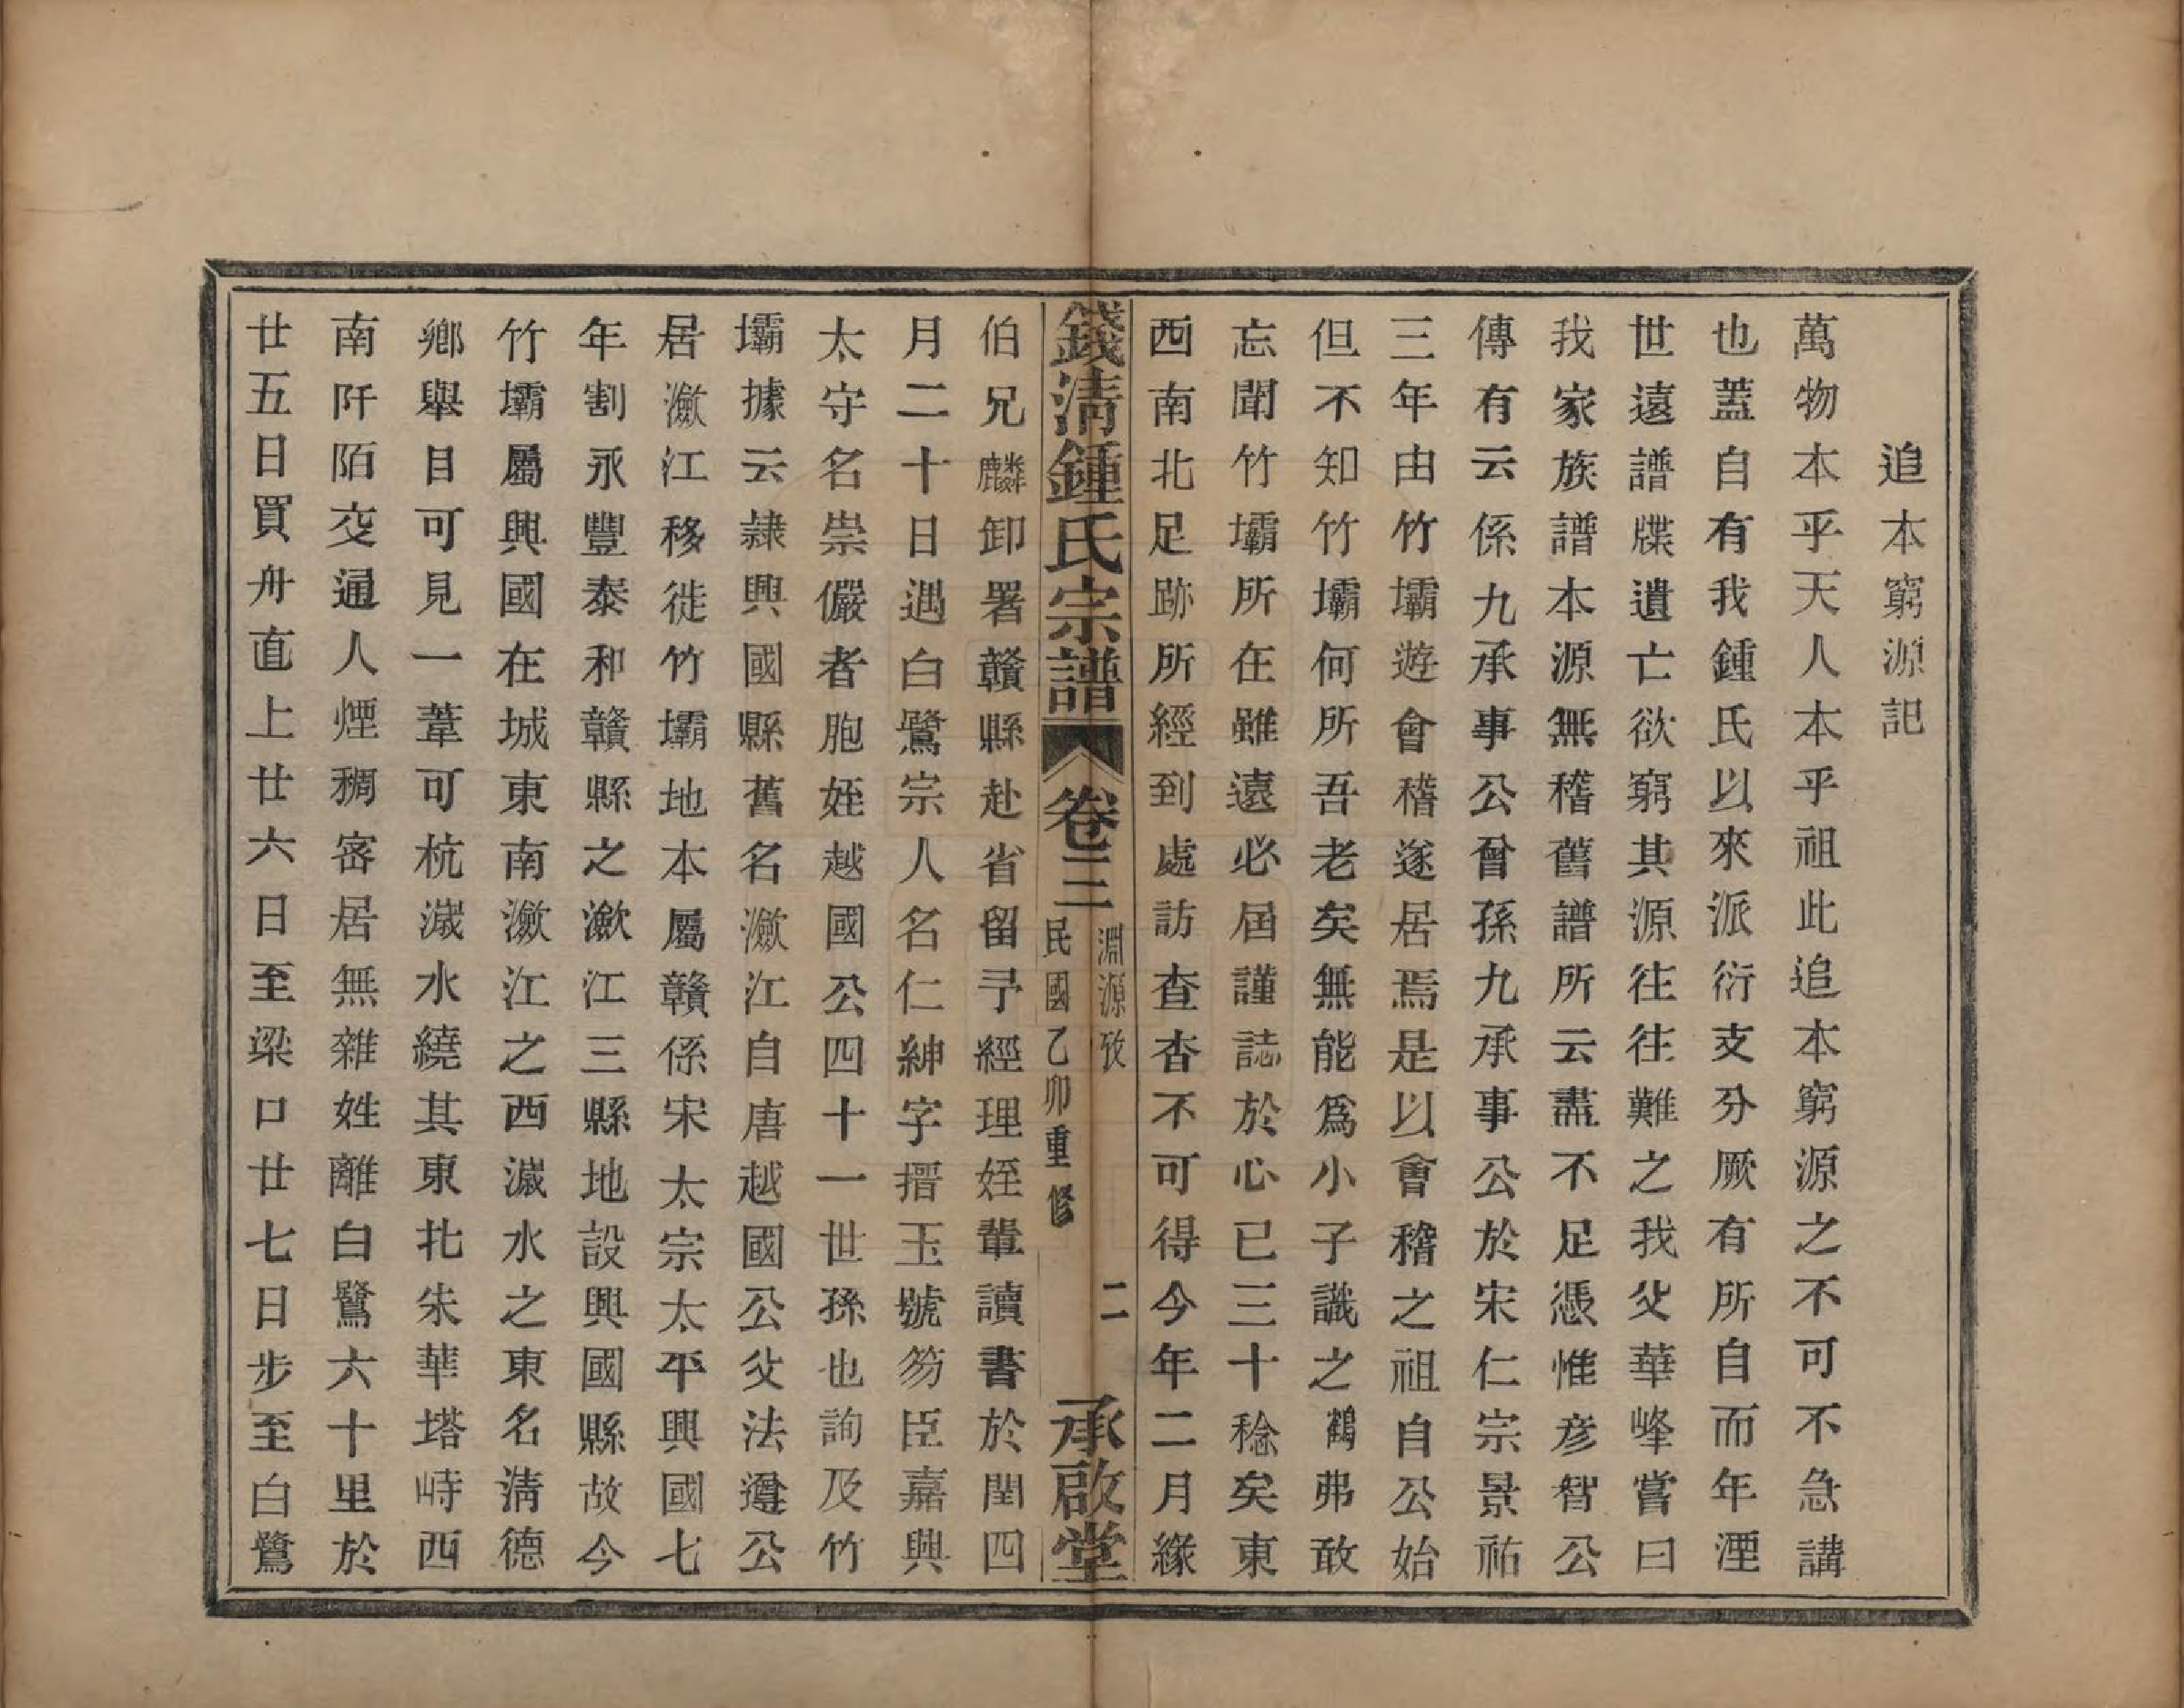 追本窮源記
萬物本乎天人本乎祖此追本窮源之不可不急講
也蓋自有我鍾氏以來派衍支分厥有所自而年湮
世遠譜牒遺亡欲窮其源往往難之我父華峰嘗曰
我家族譜本源無稽舊譜所云盡不足憑惟彥智公
傳有云係九承事公曾孫九承事公於宋仁宗景祐
三年由竹壩遊會稽遂居焉是以會稽之祖自公始
但不知竹壩何所吾老矣無能爲小子識之鶴弗敢
忘聞竹壩所在雖遠必屆謹誌於心已三十稔矣東
西南北足跡所經到處訪查杳不可得今年二月緣
錢清鍾氏宗譜
卷三
淵源攷
民國乙卯重修
二
承啟堂
伯兄麟卸署贛縣赴省留予經理姪輩讀書於閏四
月二十日遇白鷺宗人名仁紳字搢玉號笏臣嘉興
太守名崇儼者胞姪越國公四十一世孫也詢及竹
壩據云隷興國縣舊名瀲江自唐越國公父法遵公
居瀲江移徙竹壩地本屬贛係宋太宗太平興國七
年割永豐泰和贛縣之瀲江三縣地設興國縣故今
竹壩屬興國在城東南瀲江之西濊水之東名清德
鄉舉目可見一葦可杭濊水繞其東北朱華塔峙西
南阡陌交通人煙稠密居無雜姓離白鷺六十里於
廿五日買舟直上廿六日至梁口廿七日步至白鷺